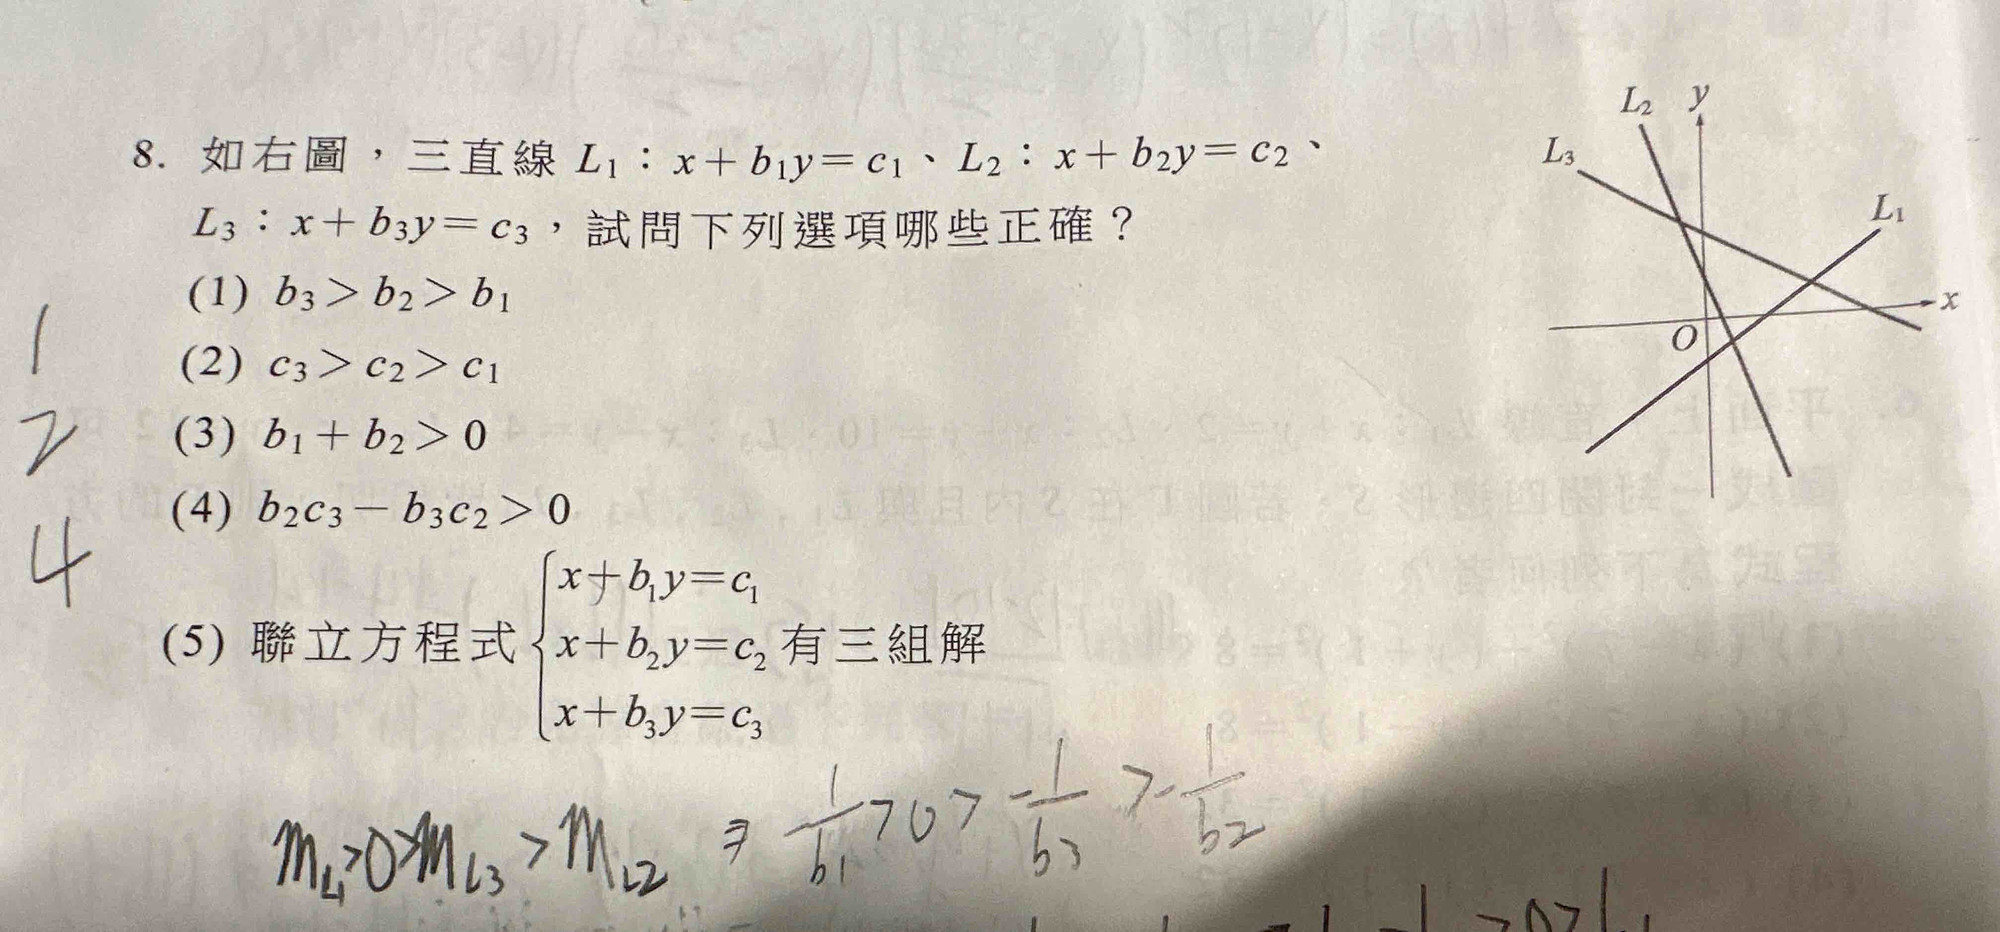 8. 如右圖，三直線 L₁：x＋b₁y＝c₁、L₂：x＋b₂y＝c₂、
L₃：x＋b₃y＝c₃，試問下列選項哪些正確？
(1) b₃＞b₂＞b₁
(2) c₃＞c₂＞c₁
(3) b₁＋b₂＞0
(4) b₂c₃－b₃c₂＞0
(5) 聯立方程式 { x＋b₁y＝c₁
x＋b₂y＝c₂ 有三組解
x＋b₃y＝c₃
L₂ y
L₃
L₁
x
O
1
2
4
m_L1>0>m_L3>m_L2 ⇒ -1/b₁>0>-1/b₃>-1/b₂